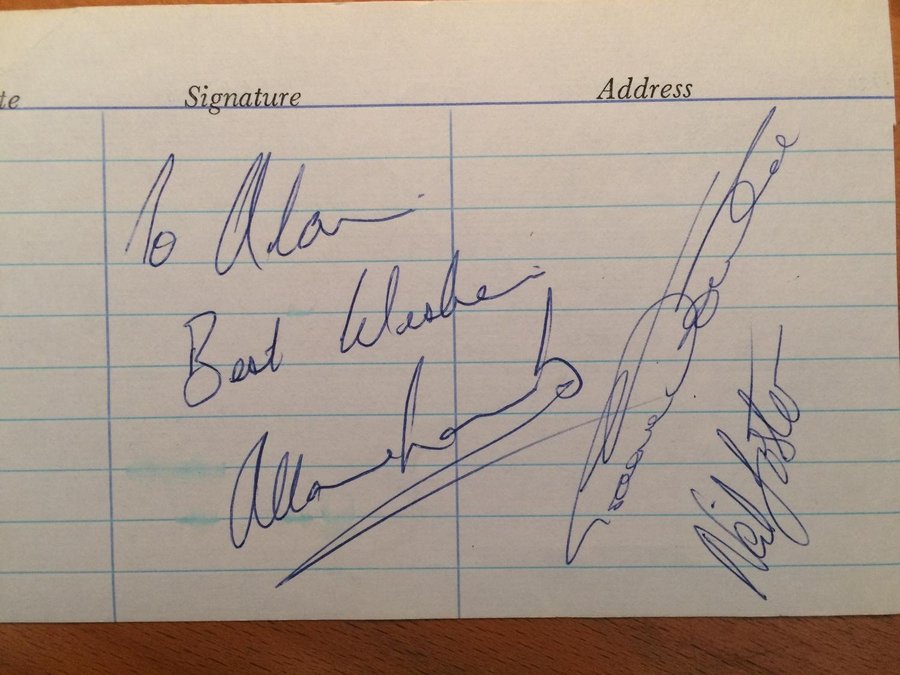 te Signature Address
To Alan
Best Wishes
Allan Lamb
Neil Foster